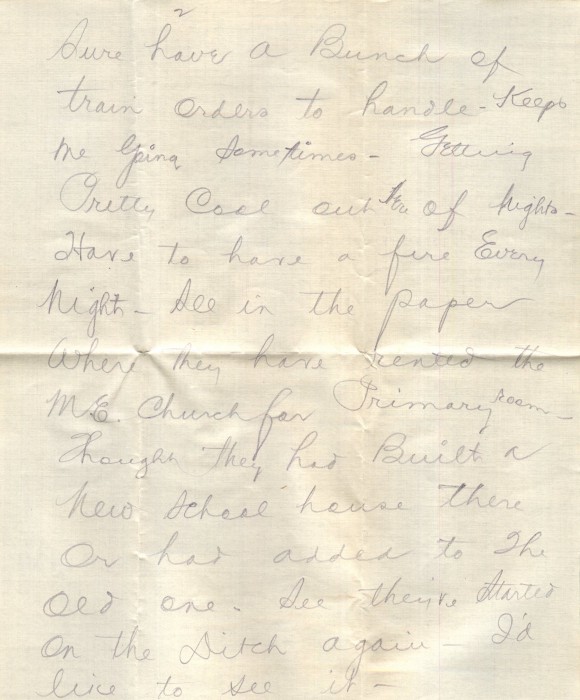 2
Sure have a Bunch of
train orders to handle - Keeps
me Going Sometimes - Getting
Pretty Cool out here of Nights -
Have to have a fire Every
Night - See in the paper
Where they have rented the
M.E. Church for Primary room -
Thought they had Built a
New School house there
Or had added to The
Old one - See they've Started
On the Ditch again - I'd
like to see it -